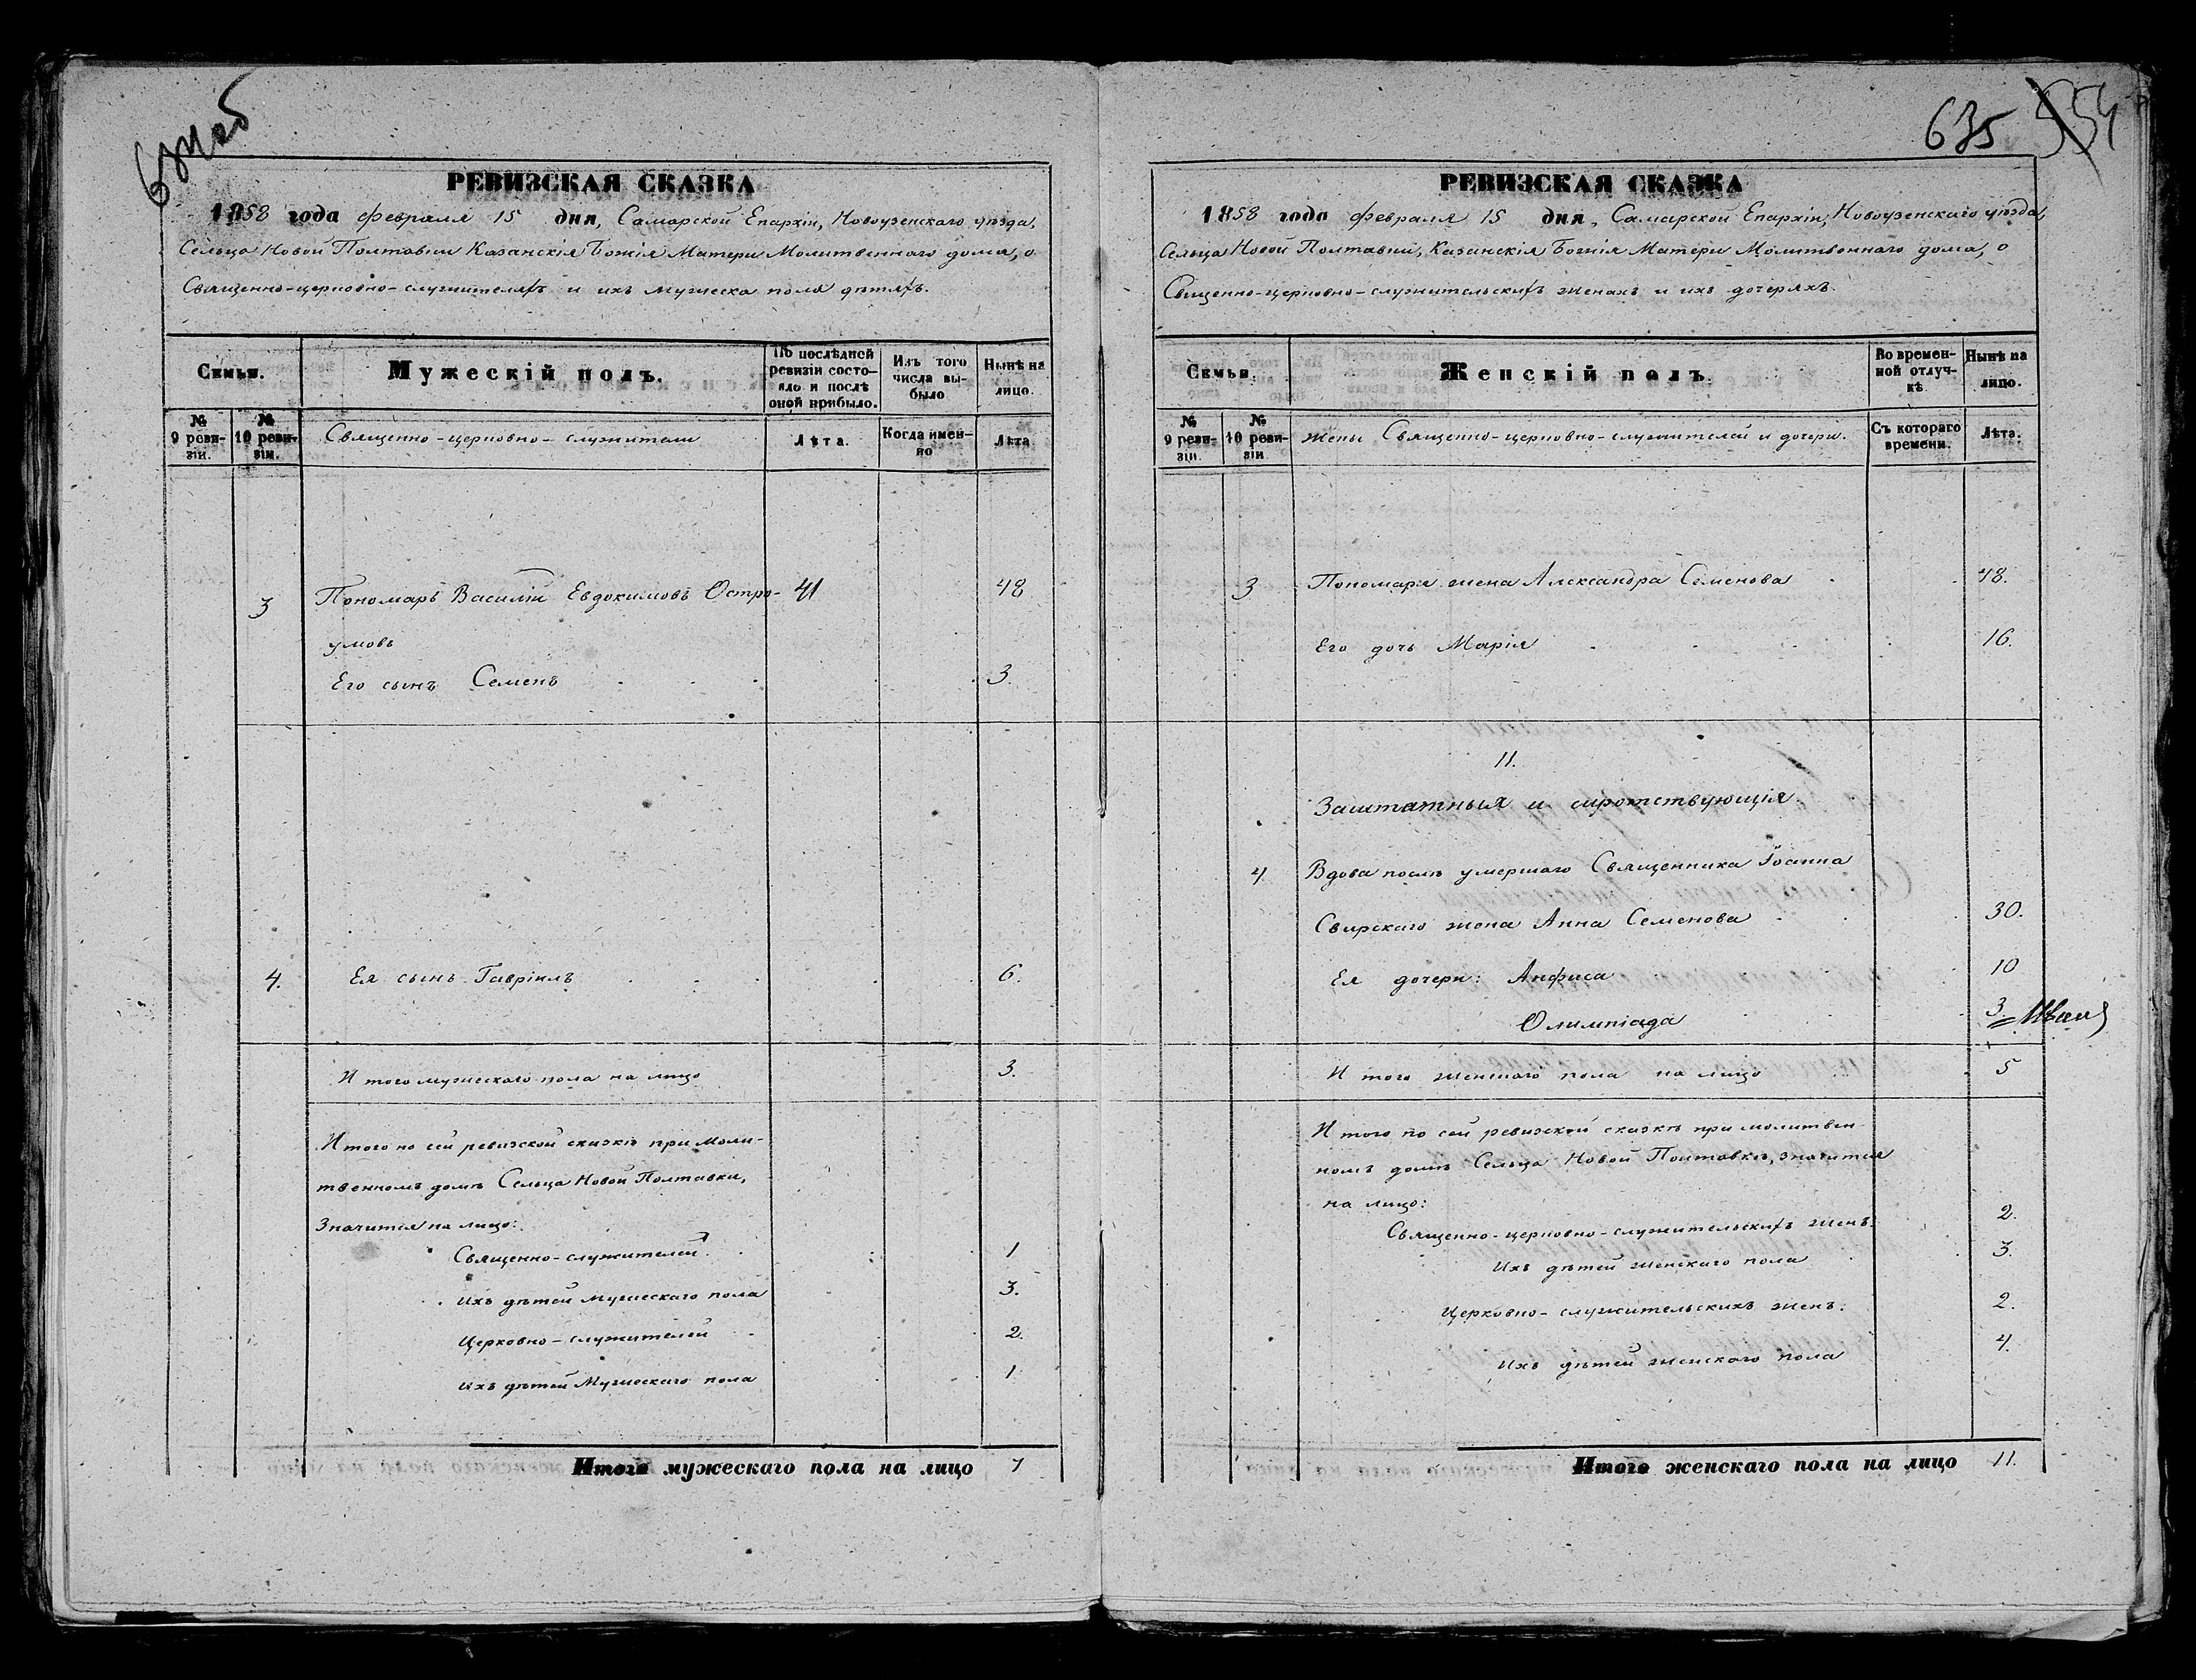 634об
РЕВИЗСКАЯ СКАЗКА
1858 года февраля 15 дня, Самарской Епархіи, Новоузенскаго уѣзда,
Сельца Новой Полтавки Казанскія Божія Матери Молитвеннаго дома, о
Священно-церковно-служителяхъ и ихъ мужеска пола дѣтяхъ.
Семьи.
Мужескій полъ.
По послѣдней ревизіи состояло и послѣ оной прибыло.
Изъ того числа выбыло
Нынѣ на лицо.
№ 9 ревизіи.
№ 10 ревизіи.
Священно-церковно-служители
Лѣта.
Когда именно
Лѣта
3 Пономарь Василій Евдокимовъ Остро- 41 48
умовъ
Его сынъ Семенъ 3.
4. Ея сынъ Гавріилъ 6.
И того мужескаго пола на лицо 3.
Итого по сей ревизской сказкѣ при моли-
твенномъ домѣ Сельца Новой Полтавки,
Значится на лицо:
Священно-служителей. 1
Ихъ дѣтей мужескаго пола 3.
Церковно-служителей 2.
Ихъ дѣтей Мужескаго пола 1
Итого мужескаго пола на лицо 7
635 554
РЕВИЗСКАЯ СКАЗКА
1858 года февраля 15 дня, Самарской Епархіи, Новоузенскаго уѣзда,
Сельца Новой Полтавки, Казанскія Божія Матери Молитвеннаго дома, о
Священно-церковно-служительскихъ женахъ и ихъ дочеряхъ.
Семьи.
Женскій полъ.
Во временной отлучкѣ.
Нынѣ на лицо.
№ 9 ревизіи.
№ 10 ревизіи
Жены Священно-церковно-служителей и дочери.
Съ котораго времени.
Лѣта.
3 Пономаря жена Александра Семенова 48.
Его дочь Марія 16.
11.
Заштатныя и сиротствующія.
4. Вдова послѣ умершаго Священника Іоанна
Свирскаго жена Анна Семенова 30.
Ея дочери: Анфиса 10
Олимпіада 3.
И того женскаго пола на лицо 5
И того по сей ревизской сказкѣ при молитвен-
номъ домѣ Сельца Новой Полтавки, значится
на лицо:
Священно-церковно-служительскихъ женъ. 2.
Ихъ дѣтей женскаго пола 3.
Церковно-служительскихъ женъ. 2.
Ихъ дѣтей женскаго пола 4.
Итого женскаго пола на лицо 11.